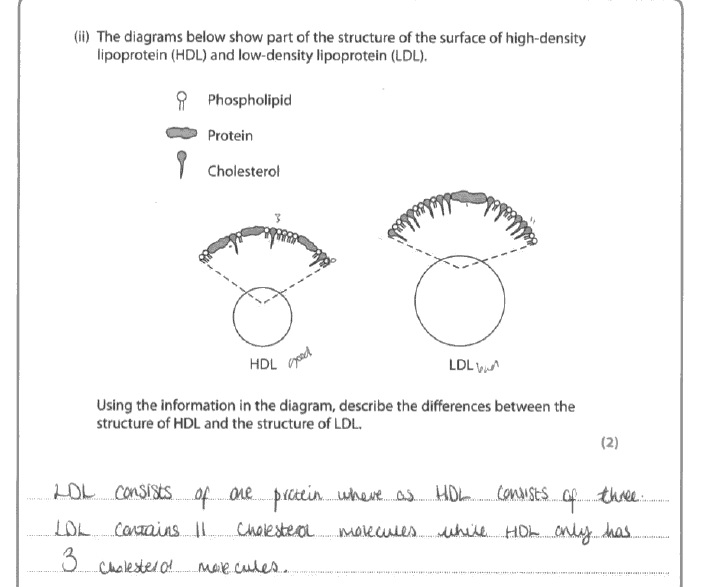 (ii) The diagrams below show part of the structure of the surface of high-density
lipoprotein (HDL) and low-density lipoprotein (LDL).
Phospholipid
Protein
Cholesterol
3
11
HDL good
LDL bad
Using the information in the diagram, describe the differences between the
structure of HDL and the structure of LDL.
(2)
LDL consists of one protein where as HDL consists of three.
LDL contains 11 cholesterol molecules while HDL only has
3 cholesterol molecules.